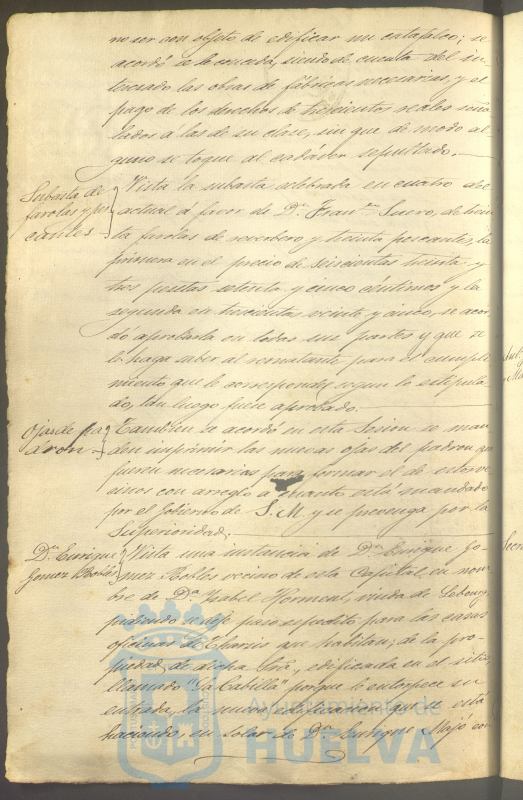 no ser con objeto de edificar un catafalco; se
acordó se le conceda, siendo de cuenta del in-
teresado las obras de fábricas necesarias, y el
pago de los derechos de trescientos reales seña-
lados a las de su clase, sin que de modo al
guno se toque al cadáver sepultado.
Subasta de
farolas y pes
cantes
Vista la subasta celebrada en cuatro del
actual á favor de Dn. Fran.co Suero, de trein
ta farolas de reverbero y treinta pescantes, la
primera en el precio de Seiscientas treinta y
tres pesetas setenta y cinco céntimos y la
segunda en trescientas veinte y cinco, se acor
dó aprobarla en todas sus partes y que se
le haga saber al rematante para el cumpli
miento que le corresponde, segun lo estipula
do, tan luego fuese aprobado.
Ojas de pa
dron
Tambien se acordó en esta Sesion se man
den imprimir las nuevas ojas del padron que
fueren necesarias para formar el de estos ve
cinos con arreglo a cuanto está mandado
por el Gobierno de S. M. y se prevenga por la
Superioridad.
Dn. Enrique
Gomez Robles
Vista una instancia de Dn. Enrique Go-
mez Robles vecino de esta Capital, en nom
bre de Da. Isabel viuda de
pidiendo se deje paso espedito para las casas
oficinas de Tharsis que habitan, de la pro-
piedad de dicha Sra., edificada en el sitio
llamado "La Cabilla" porque le entorpece su
entrada, la nueva edificacion que se está
haciendo en solar de Dn. Enrique con
Ayuntamiento de
HUELVA